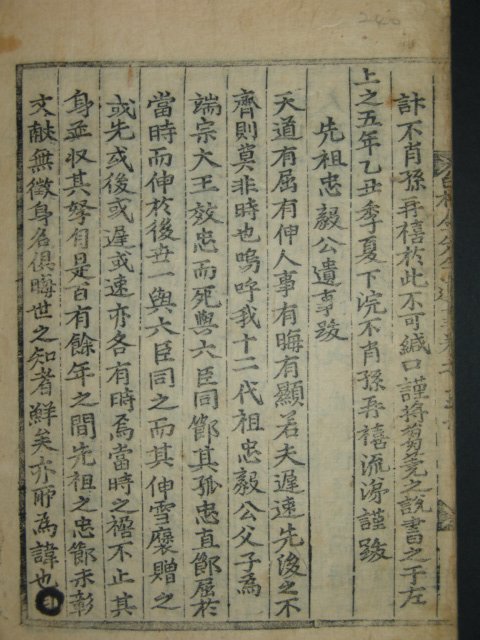 訃不肖孫再禧於此不可緘口謹將蒭蕘之說書之于左
上之五年乙丑季夏下浣不肖孫再禧流涕謹跋
先祖忠毅公遺事跋
天道有屈有伸人事有晦有顯若夫遲速先後之不
齊則莫非時也嗚呼我十二代祖忠毅公父子為
端宗大王效忠而死與六臣同節其孤忠直節屈於
當時而伸於後世一與六臣同之而其伸雪褒贈之
或先或後或遲或速亦各有時焉當時之禍不止其
身並収其孥自是百有餘年之間先祖之忠節未彰
文献無徵身名俱晦世之知者鮮矣亦所為諱也